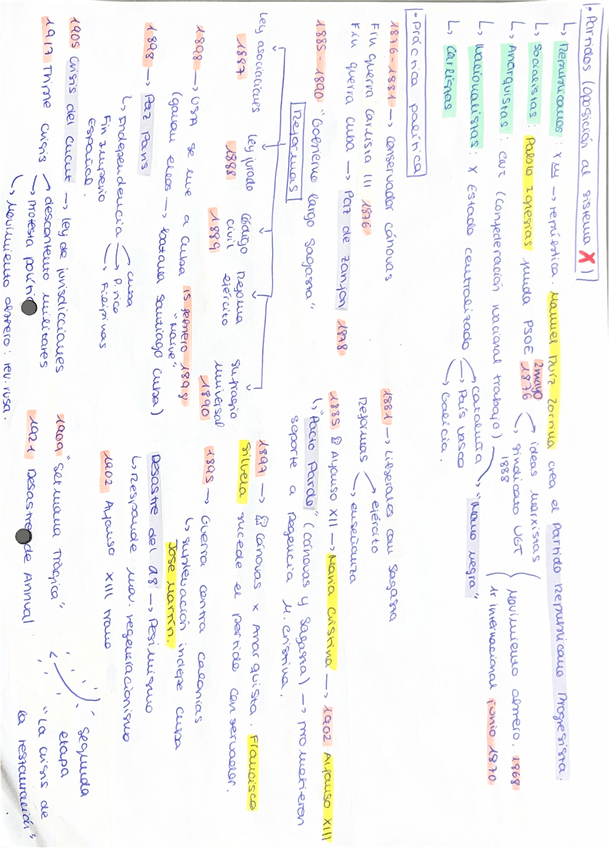 • Partidos (oposición al sistema X)
↳ Republicanos: x la → república. Manuel Ruiz Zorrilla crea el Partido Republicano Progresista.
↳ Socialistas: Pablo Iglesias funda PSOE 2 mayo 1876 → ideas marxistas
→ sindicato UGT 1888
Movimiento obrero. 1868
1r internacional junio 1870
↳ Anarquistas: CNT (Confederación nacional trabajo) → "Mano negra"
↳ Nacionalistas: X Estado centralizado → Cataluña
→ País Vasco
→ Galicia.
↳ Carlistas
• Práctica política
1876-1881 → conservador cánovas
Fin guerra carlista III 1876
Fin guerra Cuba → Paz de Zanjón 1878
1885-1890 "Gobierno largo Sagasta"
Reformas
Ley asociaciones 1887
ley jurado 1888
código civil 1889
Reforma ejército
sufragio universal 1890
1898 → USA se une a Cuba 15 febrero 1898 "Maine"
(ganan EEUU → batalla Santiago Cuba)
1898 → Paz París
↳ Independencia → Cuba
→ P. Rico
→ Filipinas
Fin imperio
Español.
1905 Crisis del Cucut → ley de jurisdicciones
1917 Triple crisis → descontento militares
→ Protesta política
→ Movimiento obrero: rev. rusa.
1881 → Liberales con Sagasta
Reformas → ejército
→ enseñanza
1885 Alfonso XII → María Cristina → 1902 Alfonso XIII
↳ "Pacto Pardo" (cánovas y Sagasta) → prometieron
soporte a regencia M. Cristina.
1897 → Cánovas x Anarquista. Francisco
Silvela sucede el partido conservador.
1895 → Guerra contra colonias
↳ sublevación indepe Cuba
José Martín.
Desastre del 98 → Pesimismo
↳ Responde mov. regeneracionismo
1902 Alfonso XIII trono
1909 "Semana Trágica"
1921 Desastre de Annual
Segunda
etapa
"La crisis de
la restauración"